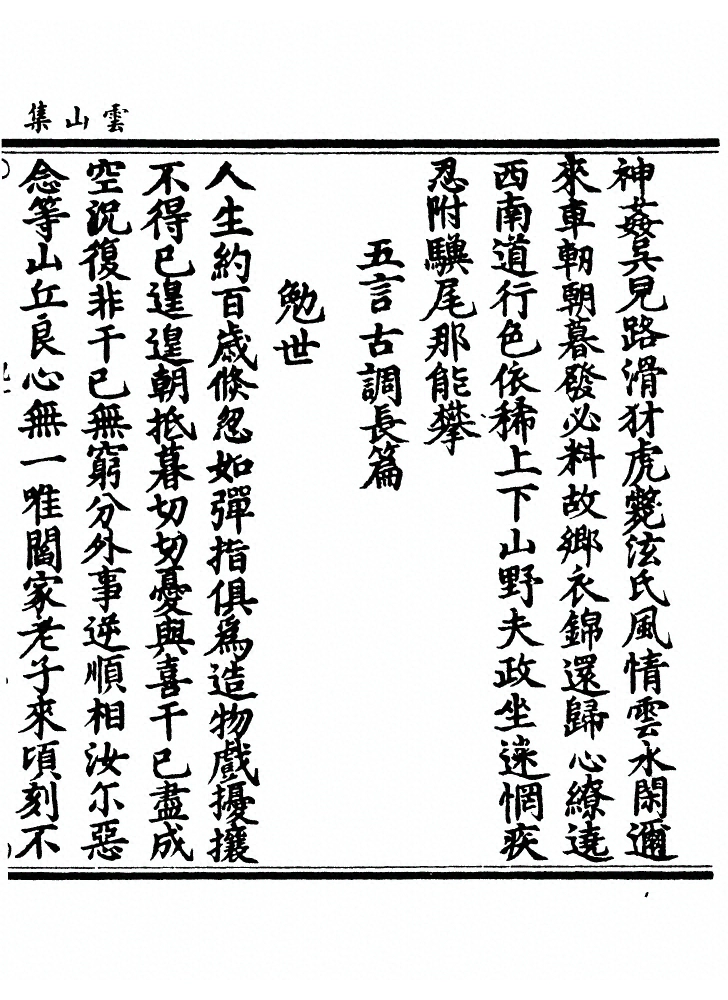 雲山集
神姦呉見路滑犲虎斃泫氏風情雲水閑邇
來車軔朝暮發必料故鄉衣錦還歸心繚遶
西南道行色依稀上下山野夫政坐迷惘疾
忍附驥尾那能攀
五言古調長篇
勉世
人生約百歲倏忽如彈指俱爲造物戲擾攘
不得已遑遑朝抵暮切切憂與喜干已盡成
空況復非干已無窮分外事逆順相汝尔惡
念等山丘良心無一唯閻家老子來頃刻不